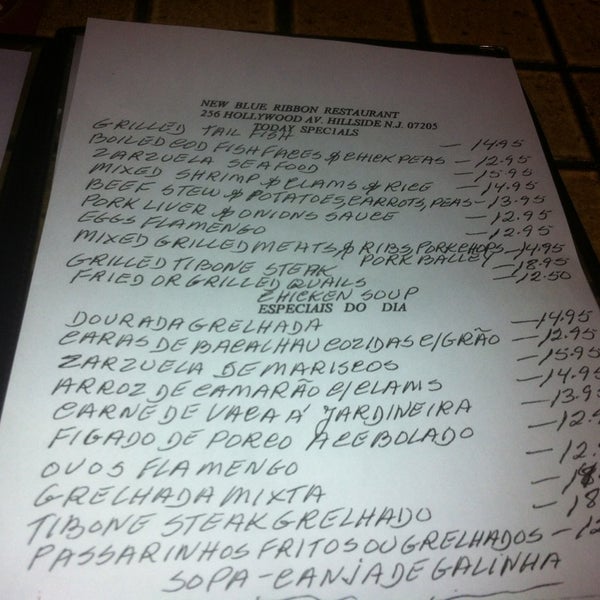 NEW BLUE RIBBON RESTAURANT
256 HOLLYWOOD AV. HILLSIDE N.J. 07205
TODAY SPECIALS
GRILLED TAIL FISH — 14.95
BOILED COD FISH FACES & CHICK PEAS — 12.95
ZARZUELA SEAFOOD — 15.95
MIXED SHRIMP & CLAMS & RICE — 14.95
BEEF STEW & POTATOES, CARROTS, PEAS — 13.95
PORK LIVER & ONIONS SAUCE — 12.95
EGGS FLAMENGO — 12.95
MIXED GRILLED MEATS & RIBS, PORK CHOPS — 14.95
PORK BALLEY
GRILLED TIBONE STEAK — 18.95
FRIED OR GRILLED QUAILS — 12.50
CHICKEN SOUP
ESPECIAIS DO DIA
DOURADA GRELHADA — 14.95
CARAS DE BACALHAU COZIDAS C/GRÃO — 12.95
ZARZUELA DE MARISCOS — 15.95
ARROZ DE CAMARÃO C/CLAMS — 14.95
CARNE DE VACA A' JARDINEIRA — 13.9
FIGADO DE PORCO ACEBOLADO — 12.
OVOS FLAMENGO — 12.
GRELHADA MIXTA
TIBONE STEAK GRELHADO — 18
PASSARINHOS FRITOS OU GRELHADOS — 12
SOPA - CANJA DE GALINHA